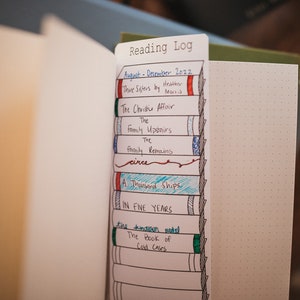 Reading Log
August - December 2022
Three Sisters By Heather
Morris
The Christie Affair
The
Family Upstairs
The
Family Remains
circe
A Thousand Ships
IN FIVE YEARS
The Book of
Cold Cases